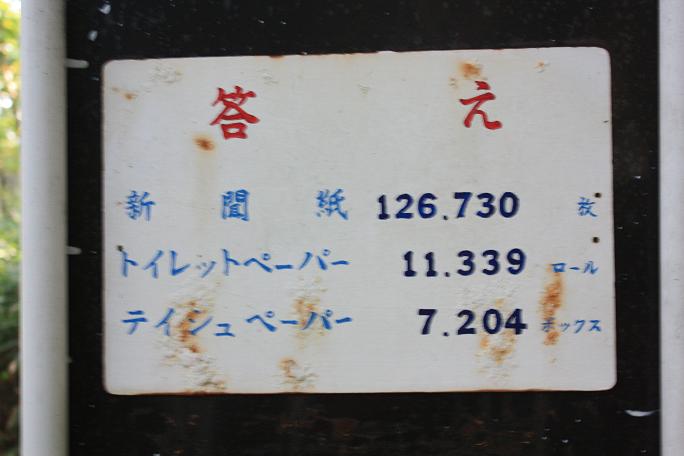 答え
新聞紙 126.730 枚
トイレットペーパー 11.339 ロール
テイシュペーパー 7.204 ボックス